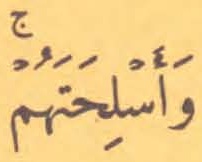 وَأَسْلِحَتَهُمْ ۚ